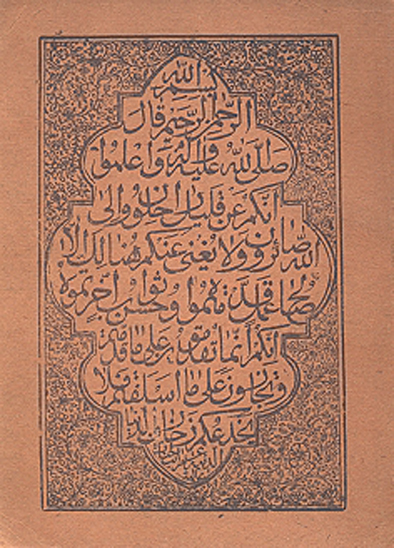 بسم الله
الرحمن الرحيم قال
صلى الله عليه وآله واعلموا
انكم عن قليل راحلون والى
الله صائرون ولا يغنى عنكم هنالك الا
صالح عمل قدمتموه وحسن ثواب احرزتموه
انكم انما تقدمون على ما قدمتم
وتجازون على ما اسلفتم فلا
تخدعنكم زخارف